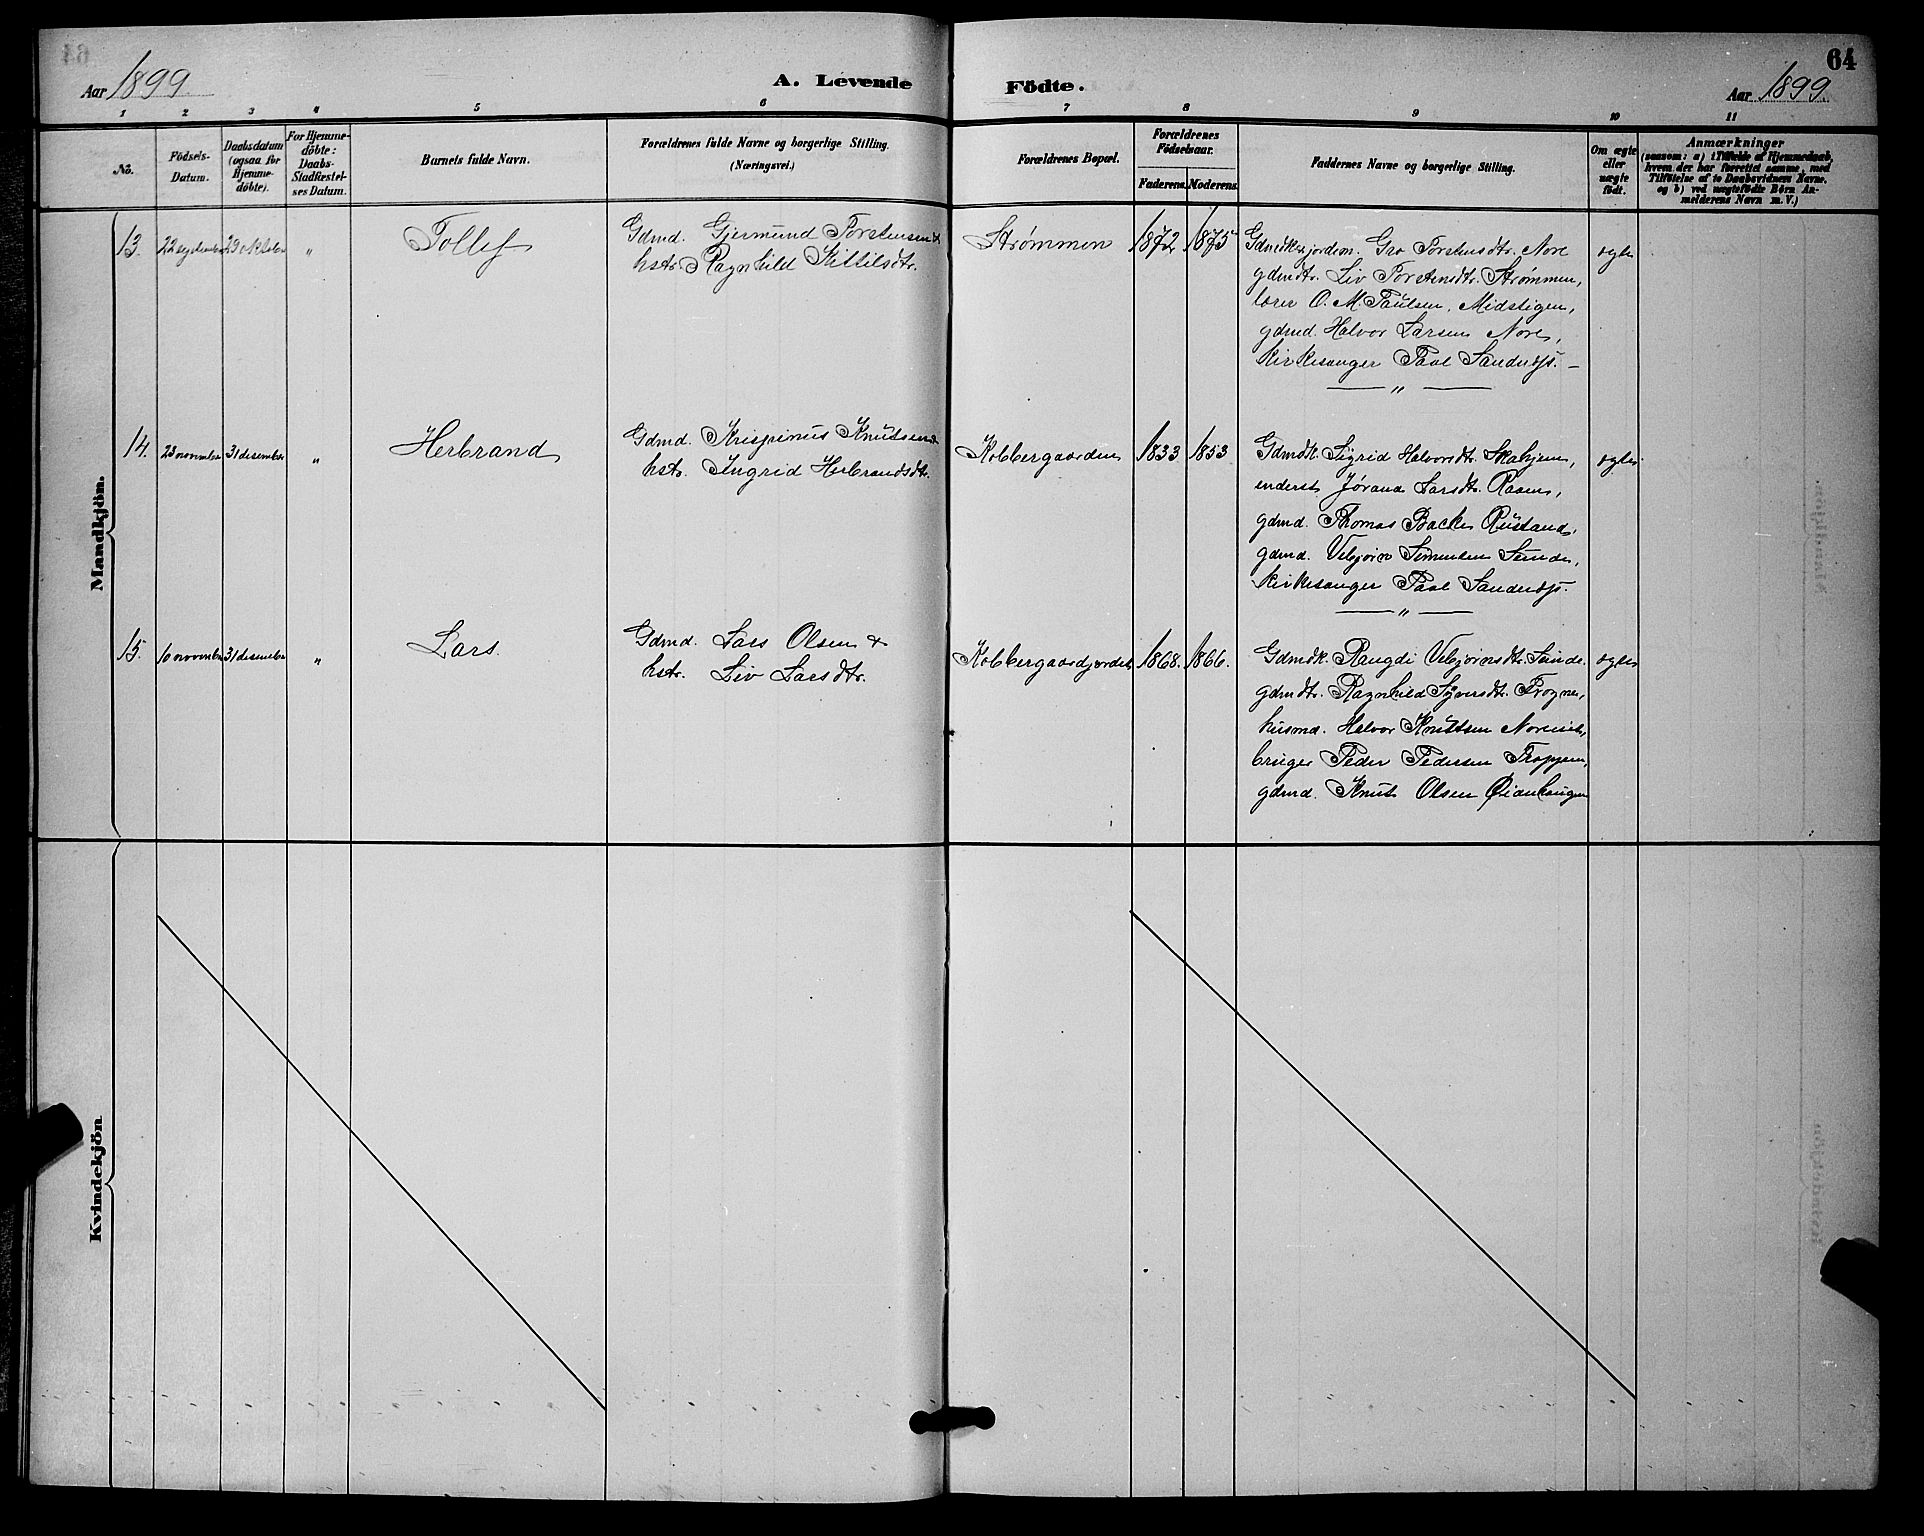 64
Aar 1899
A. Levende Födte.
Aar 1899.
1 2 3 4 5 6 7 8 9 10 11
No.
Födsels-Datum.
Daabsdatum (ogsaa for Hjemme-döbte).
For Hjemme-döbte: Daabs-Stadfæstel-ses Datum.
Barnets fulde Navn.
Forældrenes fulde Navne og borgerlige Stilling.
(Næringsvei.)
Forældrenes Bopæl.
Forældrenes Födselsaar.
Faderens. Moderens.
Faddernes Navne og borgerlige Stilling.
Om ægte eller uægte födt.
Anmærkninger
(saasom: a) i Tilfælde af Hjemmedaab,
hvem der har forrettet samme, med
Tilföielse af to Daabsvidners Navne,
og b) ved uægtefödte Börn An-
melderens Navn m. V.)
Mandkjön.
13. 22 september 29 oktober " Tollef
Gdmd. Gjermund Torstensen &
hstr. Ragnhild Kittilsdtr.
Strømmen 1872 1875
Gro Torstensdtr. Nore
gdmdtr. Liv Torstensdtr. Strømmen,
lærer O. M. Paulsen, Midstigen,
gdmd. Halvor Larsen Nore,
kirkesanger Paal Sanden
"
ægte
14. 23 november 31 desember " Herbrand
Gdmd. Krispinus Knutsen &
hstr. Ingrid Herbrandsdtr.
Kobbergaarden 1833 1853
Gdmdk. Sigrid Halvorsdtr. Skahjem,
enderst Jørand Larsdtr. Raaen,
gdmd. Thomas Backe Rustand,
gdmd. Vebjørn Simensen Sunde,
kirkesanger Paal Sanden
"
ægte
15. 10 november 31 desember " Lars.
Gdmd. Lars Olsen &
hstr. Liv Larsdtr.
Kobbergaardjordet 1868. 1866.
Gdmdk. Rangdi Vebjørnsdtr. Sunde.
gdmdtr. Ragnhild Syversdtr. Frogner,
husmd. Halvor Knutsen
bruger Peder Pedersen Troppen,
gdmd. Knut Olsen Øianhaugen
ægte
Kvindekjön